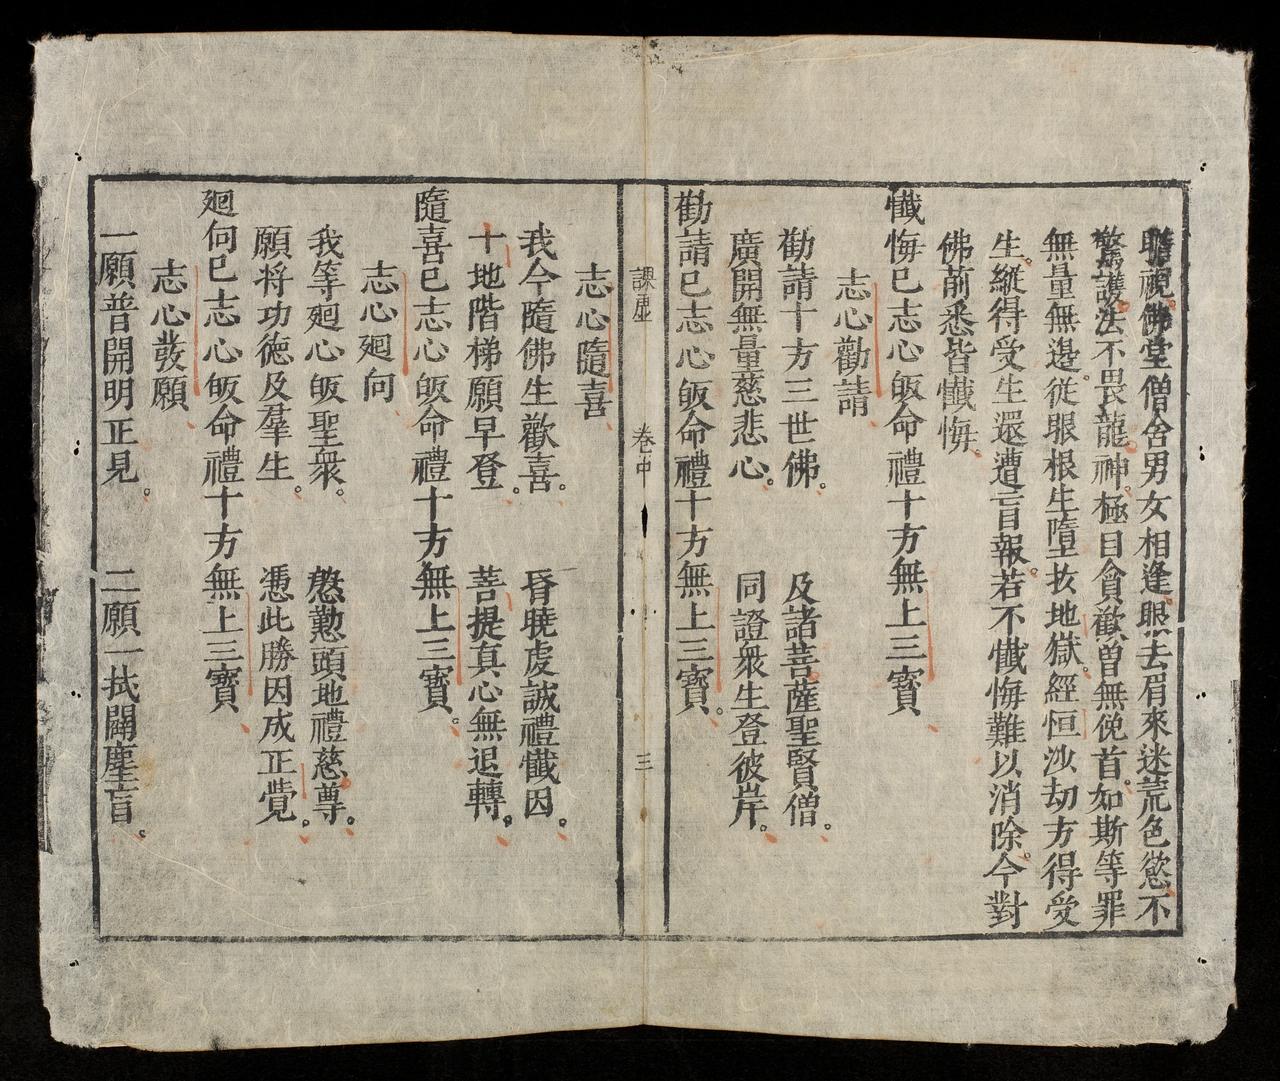 瞻視佛堂僧舍男女相逢眼去眉來迷荒色慾不
驚護法不畏龍神。極目貪歡曽無俛首。如斯等罪
無量無邊。從眼根生墮于地獄。經恒沙劫方得受
生。縱得受生還遭盲報。若不懺悔難以消除。今對
佛前悉皆懺悔。
懺悔已志心皈命禮十方無上三寳
志心勸請
勸請十方三世佛。 及諸菩薩聖賢僧。
廣開無量慈悲心。 同證衆生登彼岸。
勸請已志心皈命禮十方無上三寳。
課虛 卷中 三
志心隨喜
我今隨佛生歡喜。 昏曉虔誠禮懺因。
十地階梯願早登。 菩提真心無退轉。
隨喜已志心皈命禮十方無上三寳。
志心廻向
我等廻心皈聖衆。 慇懃頭地禮慈尊。
願将功德及羣生。 憑此勝因成正覺。
廻向已志心皈命禮十方無上三寳
志心發願
一願普開明正見。 二願一拭闢塵盲。